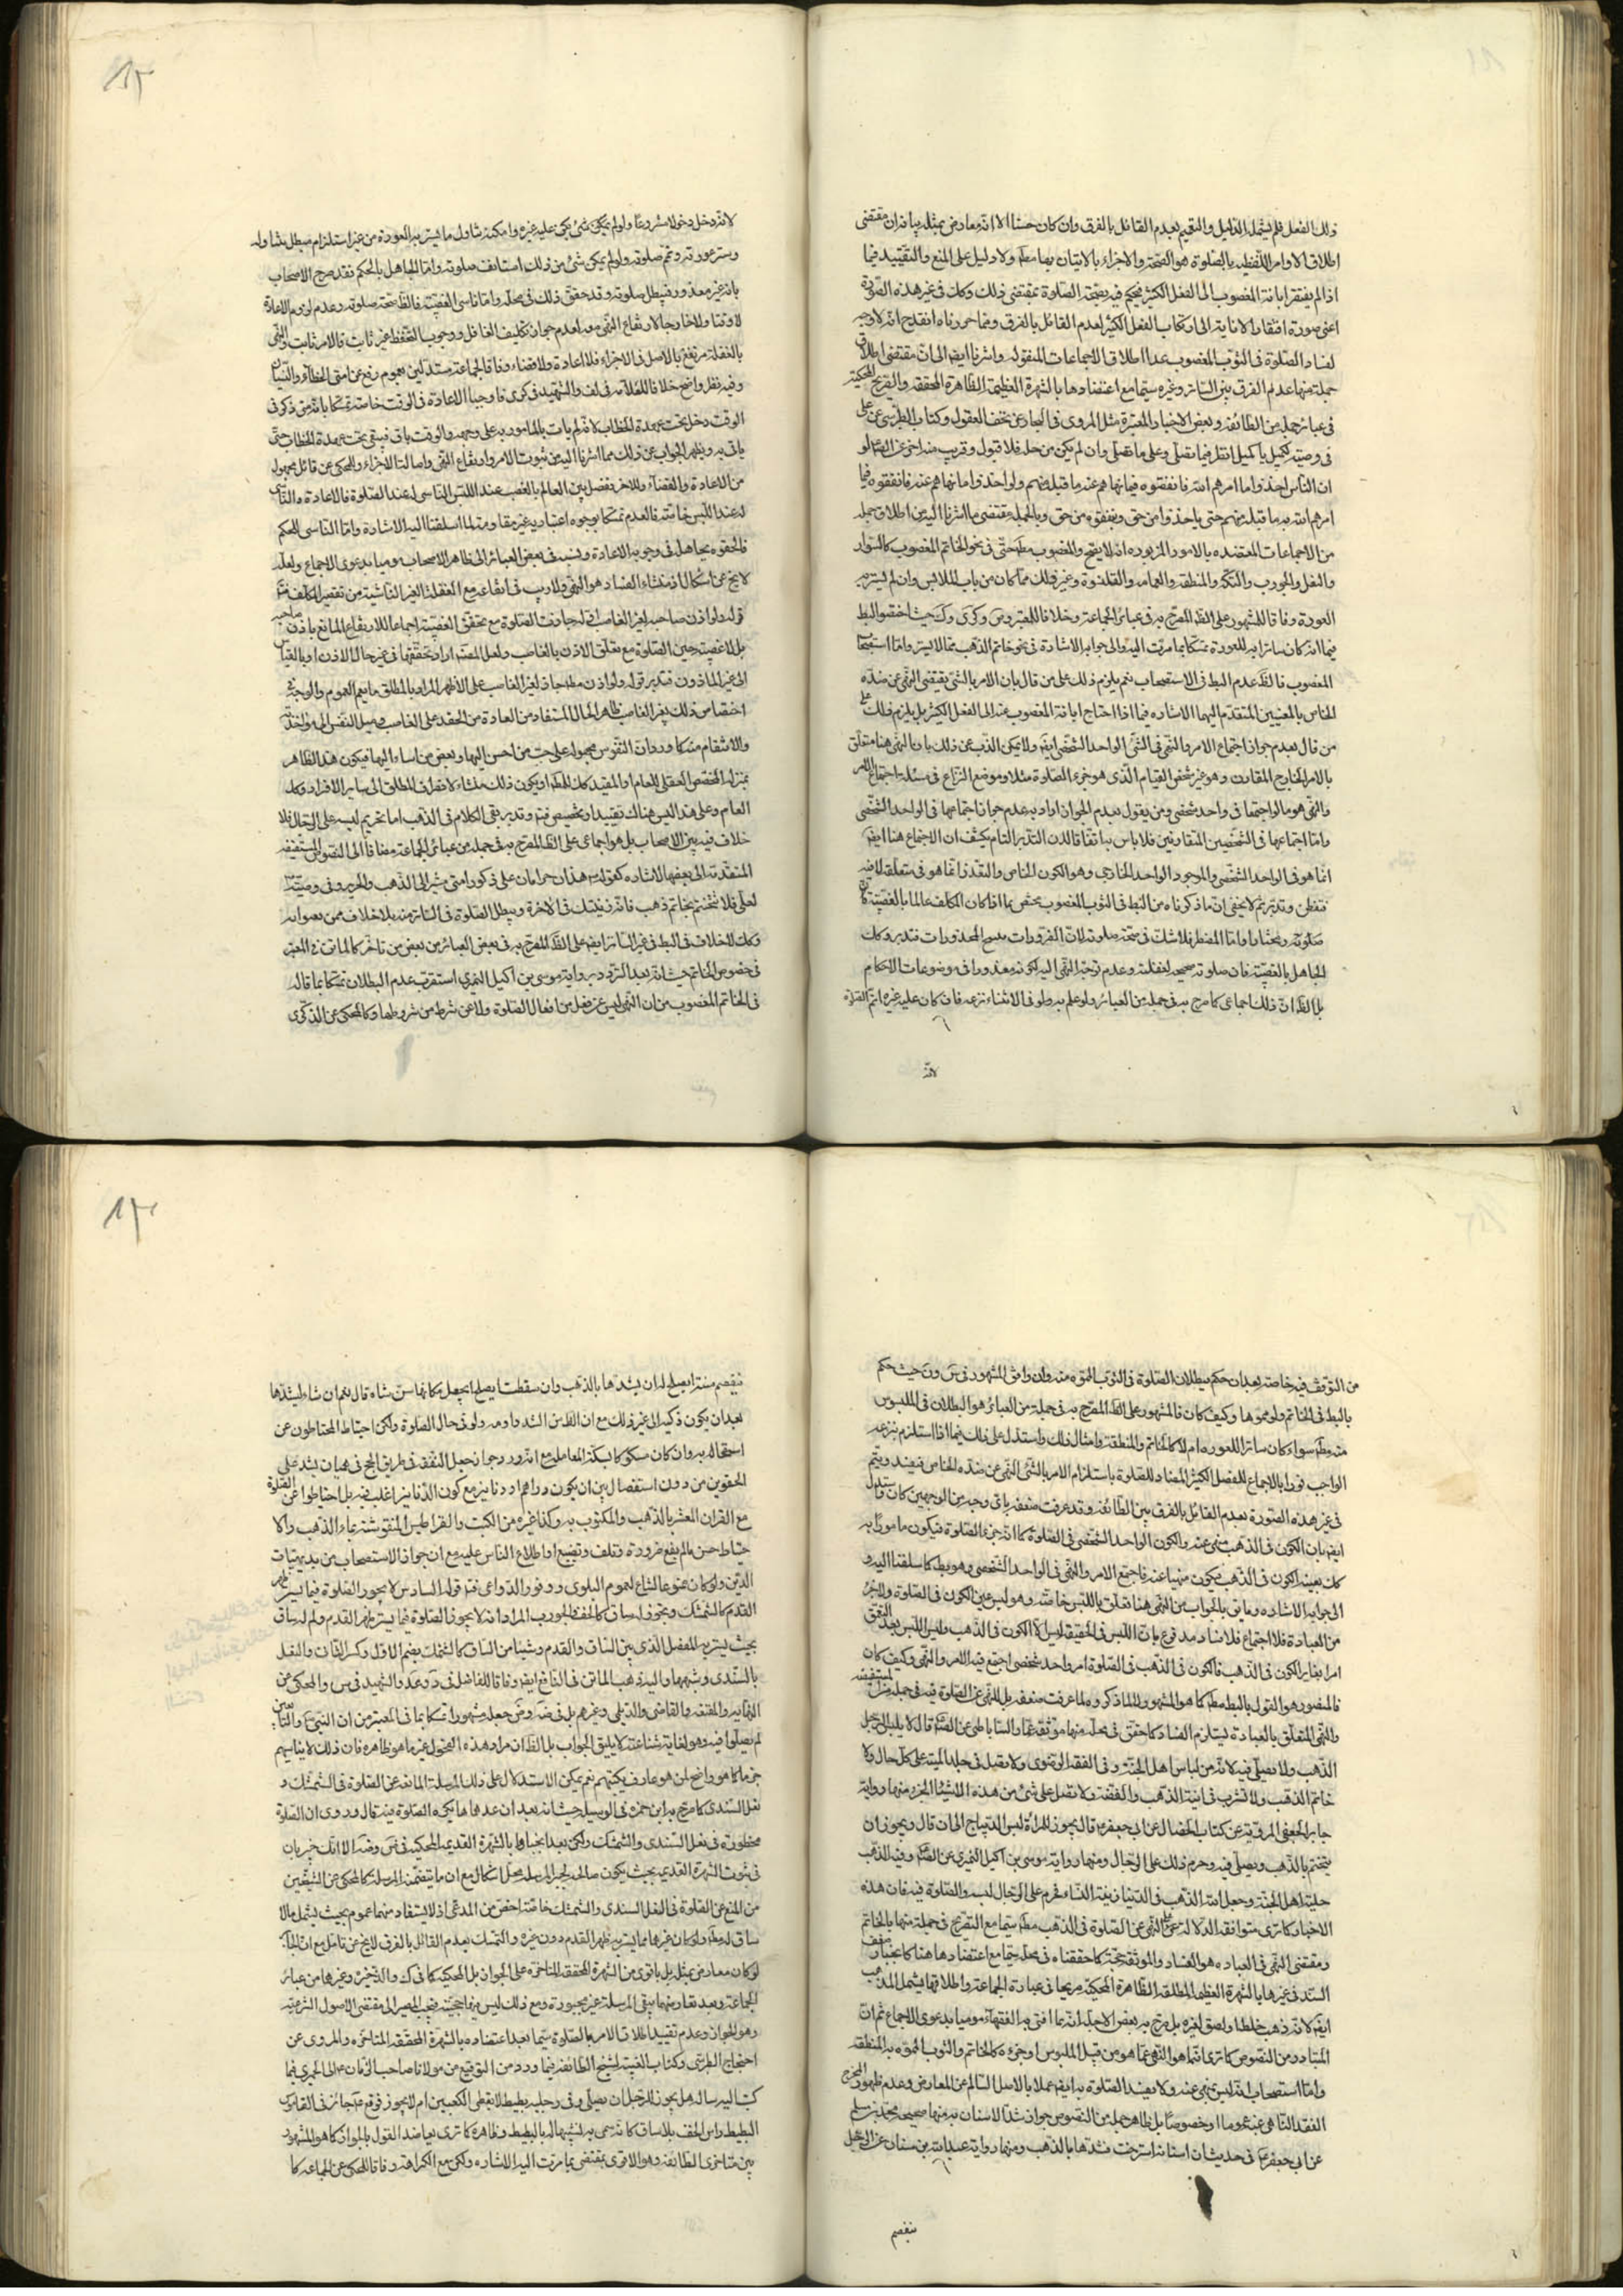 ذلك الفعل فلم يشمله الدليل والتتميم بعدم القائل بالفرق وان كان حسنا الا انه معارض بمثله بيانه ان مقتضى
اطلاق الاوامر اللفظيه بالصلوة هو الصحة والاجزاء بالاتيان بها مطلقا ولا دليل على المنع والتقييد فيما
اذا لم يفتقر ابانة المغصوب الى الفعل الكثير فيحكم فيه بصحة الصلوة بمقتضى ذلك وكك فى غير هذه الصورة
اعنى صورة افتقار الابانة الى ارتكاب الفعل الكثير لعدم القائل بالفرق ومما حررناه انقدح انه لا وجه
لفساد الصلوة فى الثوب المغصوب عدا اطلاق الاجماعات المنقوله واشرنا ايضا الى ان مقتضى اطلاق
جملة منها عدم الفرق بين الساتر وغيره سيما مع اعتضادها بالشهرة العظيمة الظاهرة المحققه والتصريح المحكية
فى عبائر جملة من الطائفه وبعض الاخبار المعتبرة مثل المروى فى البحار عن تحف العقول وكتاب الطبرسى عن على
فى وصيته لكميل يا كميل انظر فيما تصلى وعلى ما تصلى وان لم يكن من حله فلا قبول وقريب منه اخر عن الصادق لو
ان الناس اخذوا ما امرهم الله فانفقوه فيما نهاهم عنه ما قبله منهم ولو اخذوا ما نهاهم عنه فانفقوه فيما
امرهم الله به ما قبله منهم حتى ياخذوا من حق وينفقوه من حق وبالجمله مقتضى ما اشرنا اليه من اطلاق جمله
من الاجماعات المعتضده بالامور المزبوره انه لا يصح والمغصوب مطلقا حتى فى نحو الخاتم المغصوب كالسوار
والنعل والجورب والتكة والمنطقه والعمامه والقلنسوة وغير ذلك مما كان من باب الملابس وان لم يستر به
العورة وفاقا للمشهور على الظ المصرح به فى عبائر الجماعة وخلافا للمعتبر وس وكرى وك حيث اخصوا البط
فيما اذا كان ساترا به للعورة تمسكا بما مرت اليه والى جوابه الاشارة فى نحو خاتم الذهب مما لا يستر واما استصحاب
المغصوب فالظ عدم البط فى الاستصحاب نعم يلزم ذلك على من قال بان الامر بالشئ يقتضى النهى عن ضده
الخاص بالمعنيين المتقدم اليهما الاشاره فيما اذا احتاج ابانة المغصوب عنه الى الفعل الكثير بل يلزم ذلك على
من قال بعدم جواز اجتماع الامر والنهى فى الشئ الواحد الشخصى ايضا ولا يمكن الذب عن ذلك بان النهى هنا متعلق
بالامر الخارج المقارن وهو غير شخص القيام الذى هو جزء الصلوة مثلا وموضع النزاع فى مسئلة اجتماع الامر
والنهى هو ما لو اجتمعا فى واحد شخصى ومن يقول بعدم الجواز اراد به عدم جواز اجتماعهما فى الواحد الشخصى
واما اجتماعهما فى الشخصين المتقارنين فلا باس به اتفاقا لان التدبر التام يكشف ان الاجتماع هنا ايضا
انما هو فى الواحد الشخصى والموجود الواحد الخارجى وهو الكون الخاص والتعدد انما هو فى متعلقه لا فيه
فتفطن وتدبر ثم لا يخفى ان ما ذكرناه من البط فى الثوب المغصوب يختص بما اذا كان المكلف عالما بالغصبية فى
صلوته ومختارا واما المضطر فلا شك فى صحة صلوته لان الضرورات مبيح المحذورات فتدبر وكك
الجاهل بالغصبية فان صلوته صحيحه لغفلته وعدم توجه النهى اليه لكونه معذورا فى موضوعات الاحكام
بل الظ ان ذلك اجماعى كما صرح به فى جملة من العبائر ولو علم به ولو فى الاثناء نزعه فان كان عليه غيره اتم الصلوة
لانه
١٢
لانه دخل دخولا مشروعا ولو لم يكن شئ يكن عليه غيره وامكنه تناول ما يستر به العورة من غير استلزام مبطل تناوله
وستر عورته وتم صلوته ولو لم يمكن شئ من ذلك استانف صلوته واما الجاهل بالحكم فقد صرح الاصحاب
بانه غير معذور فيبطل صلوته وقد حقق ذلك فى محله واما ناسى الغصبية فالظ صحة صلوته وعدم لزوم الاعادة
لا وقتا ولا خارجا لارتفاع النهى معه لعدم جواز تكليف الغافل ووجوب التحفظ غير ثابت فالامر ثابت والنهى
بالغفلة مرتفع بالاصل فى الاجزاء فلا اعادة ولا قضاء وفاقا لجماعة مستدلين بعموم رفع عن امتى الخطاء والنسيان
وفيه نظر واضح خلافا للعلامه فى لف والشهيد فى كرى فاوجبا الاعادة فى الوقت خاصة تمسكا بانه متى ذكر فى
الوقت دخل تحت عهدة الخطاب لانه لم يات بالمامور به على وجهه والوقت باق فيبقى تحت عهدة الخطاب حتى
ياتى به ويظهر الجواب عن ذلك مما اشرنا اليه من ثبوت الامر وارتفاع النهى واصالة الاجزاء والمحكى عن قائل مجهول
من الاعادة والقضاء وللاخر نفصل بين العالم بالغصب عند اللبس الناسى له عند الصلوة فالاعادة والناسى
له عند اللبس خاصة فالعدم تمسكا بوجوه اعتباريه غير مقاومة لما اسلفنا اليه الاشارة واما الناسى للحكم
فالحقوه بجاهله فى وجوب الاعادة ونسبه فى بعض العبائر الى ظاهر الاصحاب موميا به دعوى الاجماع ولعله
لا يخ عن اشكال اذ منشاء الفساد هو النهى ولا ريب فى ارتفاعه مع الغفلة الغير الناشئة من تقصير المكلف فتدبر
قوله ولو اذن صاحبه لغير الغاصب او له جازت الصلوة مع تحقق الغصبية اجماعا لارتفاع المانع باذن صاحبه
بل لا غصبية حين الصلوة مع تعلق الاذن بالغاصب ولعل المصنف اراد تحققها فى غير حال الاذن او بالقياس
الى غير الماذون فتدبر قوله ولو اذن مطلقا جاز لغير الغاصب على الاظهر المراد بالمطلق ما يعم العموم والوجه فى
اختصاص ذلك بغير الغاصب ظاهر الحال المستفاد من العادة من الحقد على الغاصب وميل النفس الى مؤاخذته
والانتقام منه كما ورد ان النفوس مجبوله على حب من احسن اليها وبغض من اساء اليها فيكون هذا الظاهر
بمنزلة المخصص العقلى للعام او المقيد كك للمطلق او يكون ذلك منشاء لانصراف المطلق الى ساير الافراد وكك
العام وعلى هذا ليس هناك تقييد او تخصيص فتم وتدبر بقى الكلام فى الذهب اما تحريم لبسه على الرجال فلا
خلاف فيه بين الاصحاب بل هو اجماعى على الظ المصرح به فى جملة من عبائر الجماعة مضافا الى النصوص المستفيضه
المتقدمة الى بعضها الاشاره كقوله هذان حرامان على ذكور امتى مشيرا الى الذهب والحرير وفى وصيته
لعلى فلا تتختم بخاتم ذهب فانه زينتك فى الاخرة ويبطل الصلوة فى الساتر منه بلا خلاف ممن يعبوا به
وكك لا خلاف فى البط فى غير الساتر ايضا على الظ المصرح به فى بعض العبائر من بعض من تاخر كالماتن فى المعتبر
فى خصوص الخاتم حيث انه بعد التردد برواية موسى بن اكيل النميرى استقرب عدم البطلان تمسكا بما قاله
فى الخاتم المغصوب من ان النهى ليس عن فعل من افعال الصلوة ولا عن شرط من شروطها وكالمحكى عن الذكرى
من التوقف فيه خاصة بعد ان حكم ببطلان الصلوة فى الثوب المموه منه وان وافق المشهور فى س ون حيث حكم
بالبط فى الخاتم ولو مموها وكيف كان فالمشهور على الظ المصرح به فى جملة من العبائر هو البطلان فى الملبوس
منه مطلقا سواء كان ساترا للعوره ام لا كالخاتم والمنطقة وامثال ذلك واستدل على ذلك فيما اذا استلزم نزعه
الواجب فورا بالاجماع للفعل الكثير المضاد للصلوة باستلزام الامر بالشئ النهى عن ضده الخاص فيفسد ويتم
فى غير هذه الصورة بعدم القائل بالفرق بين الطائفه وقد عرفت ضعفه باى وجه من الوجهين كان واستدل
ايضا بان الكون فى الذهب منهى عنه والكون الواحد الشخصى فى الصلوة كما انه جزء الصلوة فيكون مامورا به
كك بعينه الكون فى الذهب فيكون منهيا عنه فاجتمع الامر والنهى فى الواحد الشخصى وهو بط كما سلفنا اليه و
الى جوابه الاشاره وما يق بالجواب من ان النهى هنا تعلق باللبس خاصة وهو ليس عين الكون فى الصلوة ولا جزء
من العبادة فلا اجتماع فلا فساد مدفوع بان اللبس فى الحقيقة ليس الا الكون فى الذهب وليس اللبس بعد التعمق
امرا يغاير الكون فى الذهب فالكون فى الذهب فى الصلوة امر واحد شخصى اجتمع فيه الامر والنهى وكيف كان
فالمنصور هو القول بالبط مطلقا كما هو المشهور لا لما ذكروه لما عرفت ضعفه بل للنهى عن الصلوة فيه فى جملة من المستفيضه
والنهى المتعلق بالعبادة يستلزم الفساد كما حقق فى محله منها موثقة عمار الساباطى عن الصادق قال لا يلبس الرجل
الذهب ولا يصلى فيه لانه من لباس اهل الجنة وفى الفقه الرضوى ولا تصل فى جلد الميتة على كل حال ولا
خاتم الذهب ولا تشرب فى انية الذهب والفضة ولا تصل على شئ من هذه الاشياء الخبر ومنها رواية
جابر الجعفى المروية عن كتاب الخصال عن ابى جعفر قال يجوز للمراة لبس الديباج الى ان قال ويجوز ان
تتختم بالذهب وتصلى فيه وحرم ذلك على الرجال ومنها رواية موسى بن اكيل النميرى عن الصادق وفيه الذهب
حلية اهل الجنة وجعل الله الذهب فى الدنيا زينة النساء فحرم على الرجال لبسه والصلوة فيه فان هذه
الاخبار كما ترى متوافقة الدلالة على النهى عن الصلوة فى الذهب مطلقا سيما مع التصريح فى جملة منها بالخاتم
ومقتضى النهى فى العباده هو الفساد والموثقة حجة كما حققناه فى محله سيما مع اعتضادها هنا كانجبار ضعف
السند فى غيرها بالشهرة العظيمة المطلقة الظاهرة المحكية صريحا فى عبارة الجماعة واطلاقها يشمل المذهب
ايضا لانه ذهب خلط او لصق لغيره بل صرح به بعض الاجله انه مما افتى به الفقهاء موميا به دعوى الاجماع ثم ان
المتبادر من النصوص كما ترى انما هو النهى عما هو من قبيل الملبوس او جزءه كالخاتم والثوب المموه به المنطقه
واما استصحابه فليس بمنهى عنه ولا يفسد الصلوة به ايضا عملا بالاصل السالم عن المعارض وعدم ظهور المخرج
لفقد الناهى عنه عموما او خصوصا بل ظاهر جملة من النصوص جواز شد الاسنان به منها صحيحة محمد بن مسلم
عن ابى جعفر ع فى حديث ان اسنانه استرخت فشدها بالذهب ومنها رواية عبد الله بن سنان عن الرجل
ينفصم
١٣
ينفصم سنه ايصلح له ان يشدها بالذهب وان سقطت ايصلح ان يجعل مكانها سن شاة قال نعم ان شاء ليشدها
بعد ان يكون ذكيه الى غير ذلك مع ان الظ من الشد دوامه ولو فى حال الصلوة ولكن احتياط المحتاطون عن
استصحابه وان كان مسكوكا بسكة المعامله مع انه ورد جواز جعل النفقه فى طريق الحج فى هميان يشد على
الحقوين من دون استفصال بين ان يكون دراهم او دنانير مع كون الدنانير اغلب فيه بل احتاطوا عن الصلوة
مع القران المعشر بالذهب والمكتوب به وكذا غيره من الكتب والقراطيس المنقوشة بماء الذهب والا
حتياط حسن ما لم يقع ضرورة وتلف وتضييع او اطلاع الناس عليه مع ان جواز الاستصحاب من بديهيات
الدين ولو كان ممنوعا لشاع لعموم البلوى ووفور الدواعى فتم قوله السادس لا يجوز الصلوة فيما يستر ظهر
القدم كالشمشك ويجوز فى ما له ساق كالخف والجورب المراد انه لا يجوز الصلوة فيما يستر ظهر القدم ولم له ساق
بحيث يستر به المفصل الذى بين الساق والقدم وشيئا من الساق كالشمشك بضم الاول وكسر الثانى والنعل
بالسندى وشبههما واليه ذهب الماتن فى النافع ايضا وفاقا للفاضل فى د وعد والشهيد فى س والمحكى عن
النهايه والمقنعه والقاضى والديلمى وغيرهم بل فى ضه وض جعله مشهورا تمسكا بما فى المعتبر من ان النبى والتابعين
لم يصلوا فيه وهو لغاية شناعته لا يليق الجواب بل الظ ان مراد هذه الفحول غير ما هو ظاهره فان ذلك لا يناسبهم
جزما كما هو واضح لمن هو عارف بكتبهم نعم يمكن الاستدلال على ذلك بالمرسلة المانعه عن الصلوة فى الشمشك و
نعل السندى كما صرح به ابن حمزه فى الوسيله حيث انه بعد ان عدهما مما يكره الصلوة فيه قال وروى ان الصلوة
محظورة فى نعل السندى والشمشك ولكن بعد انجبارها بالشهرة القديمه المحكية فى ض وضه الا انك خبير بان
فى ثبوت الشهرة القديمه بحيث يكون صالحه لجبر المرسله محل اشكال مع ان ما يتضمنه المرسلة كالمحكى عن الشيخين
من المنع عن الصلوة فى النعل السندى والشمشك خاصة اخص من المدعى اذ لا يستفاد منهما عموم بحيث يشمل ما لا
ساق له مطلقا ولو كان غيرهما مما يستر به ظهر القدم دون غيره والتمسك بعدم القائل بالفرق لا يخ عن تامل مع ان الحكم
لو كان معارض بمثله بل باقوى من الشهرة المحققه المتاخره على الجواز بل المحكية كما فى ك والذخيرة وغيرها من عبائر
الجماعة وبعد تعارضهما يبقى المرسلة غير مجبورة ومع ذلك ليس فيها حجية فيجب المصير الى مقتضى الاصول الشرعيه
وهو الجواز وعدم تقييد اطلاقات الامر بالصلوة سيما بعد اعتضاده بالشهرة المحققه المتاخره والمروى عن
احتجاج الطبرسى وكتاب الغيبة لشيخ الطائفه فيما ورد من التوقيع من مولانا صاحب الزمان ع الى الحميرى فيما
كتب اليه ساله هل يجوز للرجل ان يصلى وفى رجليه بطيط لا يغطى الكعبين ام لا يجوز فوقع ع جائز فى القاموس
البطيط راس الخف بلا ساق كانه سمى به لتشبيهها له بالبطيط وظاهره كما ترى يعاضد القول بالجواز كما هو المشهور
بين متاخرى الطائفه وهو الاقوى بمقتضى ما مرت اليه الاشاره ولكن مع الكراهة وفاقا للمحكى عن الجماعه كا